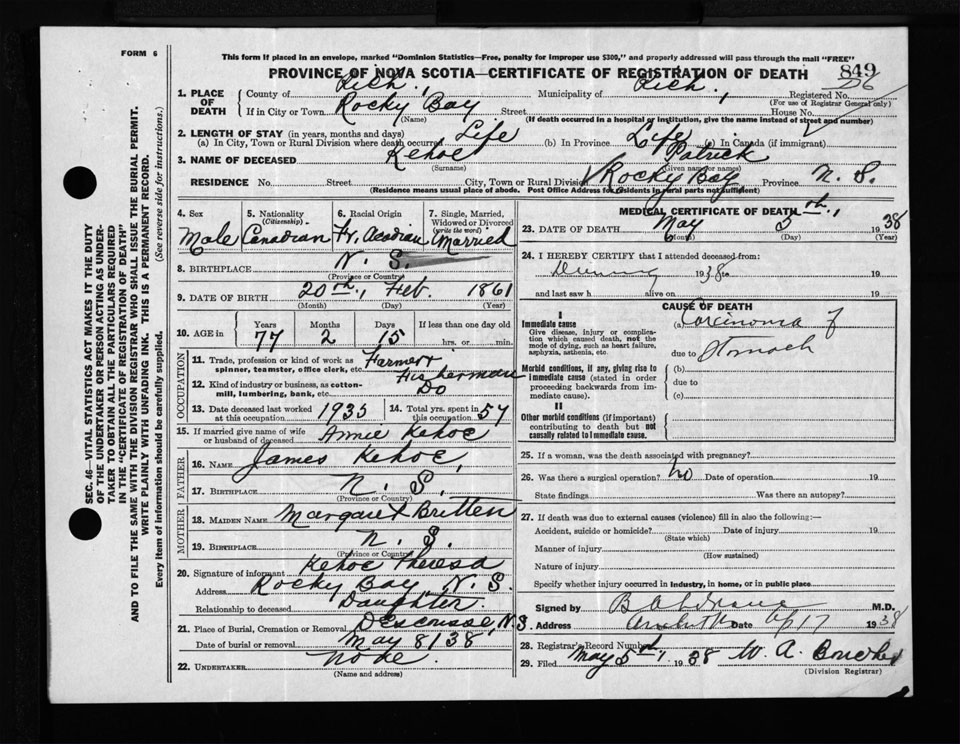 FORM 6
This form if placed in an envelope, marked "Dominion Statistics—Free, penalty for improper use $300," and properly addressed will pass through the mail "FREE"
PROVINCE OF NOVA SCOTIA—CERTIFICATE OF REGISTRATION OF DEATH
849
1. PLACE OF DEATH
County of Rich. Municipality of Rich. Registered No.
(For use of Registrar General only)
If in City or Town Rocky Bay Street House No.
(Name) (If death occurred in a hospital or institution, give the name instead of street and number)
2. LENGTH OF STAY (in years, months and days)
(a) In City, Town or Rural Division where death occurred Life (b) In Province Life (c) In Canada (if immigrant)
3. NAME OF DECEASED Kehoe Patrick
(Surname) (Given name or names)
RESIDENCE No. Street City, Town or Rural Division Rocky Bay Province N. S.
(Residence means usual place of abode. Post Office Address for Residents in rural parts not sufficient)
4. Sex Male
5. Nationality (Citizenship) Canadian
6. Racial Origin Fr. Acadian
7. Single, Married, Widowed or Divorced (write the word) Married
8. BIRTHPLACE N. S.
(Province or Country)
9. DATE OF BIRTH 20th, Feb. 1861
(Month) (Day) (Year)
10. AGE in Years 77 Months 2 Days 15 If less than one day old hrs. or min.
OCCUPATION
11. Trade, profession or kind of work as spinner, teamster, office clerk, etc. Farmer
Fisherman
12. Kind of industry or business, as cotton-mill, lumbering, bank, etc. Do
13. Date deceased last worked at this occupation 1935 14. Total yrs. spent in this occupation 57
15. If married give name of wife or husband of deceased Annie Kehoe
FATHER
16. NAME James Kehoe,
17. BIRTHPLACE N. S.
(Province or Country)
MOTHER
18. MAIDEN NAME Margaret Britten
19. BIRTHPLACE N. S.
(Province or Country)
20. Signature of informant Kehoe Theresa
Address Rocky Bay N. S.
Relationship to deceased Daughter.
21. Place of Burial, Cremation or Removal Descousse, N.S.
Date of burial or removal May 8 / 38
22. UNDERTAKER None.
(Name and address)
MEDICAL CERTIFICATE OF DEATH
23. DATE OF DEATH May 1938
(Month) (Day) (Year)
24. I HEREBY CERTIFY that I attended deceased from:
1938 to 19
and last saw h alive on 19
CAUSE OF DEATH
I
Immediate cause (a) Carcinoma of
Give disease, injury or complication which caused death, not the mode of dying, such as heart failure, asphyxia, asthenia, etc.
due to Stomach
Morbid conditions, if any, giving rise to immediate cause (stated in order proceeding backwards from immediate cause).
(b)
due to
(c)
II
Other morbid conditions (if important) contributing to death but not causally related to immediate cause.
25. If a woman, was the death associated with pregnancy?
26. Was there a surgical operation? No Date of operation 19
State findings Was there an autopsy?
27. If death was due to external causes (violence) fill in also the following:—
Accident, suicide or homicide? Date of injury 19
(State which)
Manner of injury
(How sustained)
Nature of injury
Specify whether injury occurred in industry, in home, or in public place
Signed by M.D.
Address Date 1938
28. Registrar's Record Number
29. Filed May 5th, 1938 W. A.
(Division Registrar)
SEC. 46—VITAL STATISTICS ACT MAKES IT THE DUTY
OF THE UNDERTAKER OR PERSON ACTING AS UNDER-
TAKER TO OBTAIN ALL THE PARTICULARS REQUIRED
IN THE "CERTIFICATE OF REGISTRATION OF DEATH"
AND TO FILE THE SAME WITH THE DIVISION REGISTRAR WHO SHALL ISSUE THE BURIAL PERMIT.
WRITE PLAINLY WITH UNFADING INK. THIS IS A PERMANENT RECORD.
Every item of information should be carefully supplied. (See reverse side for instructions.)